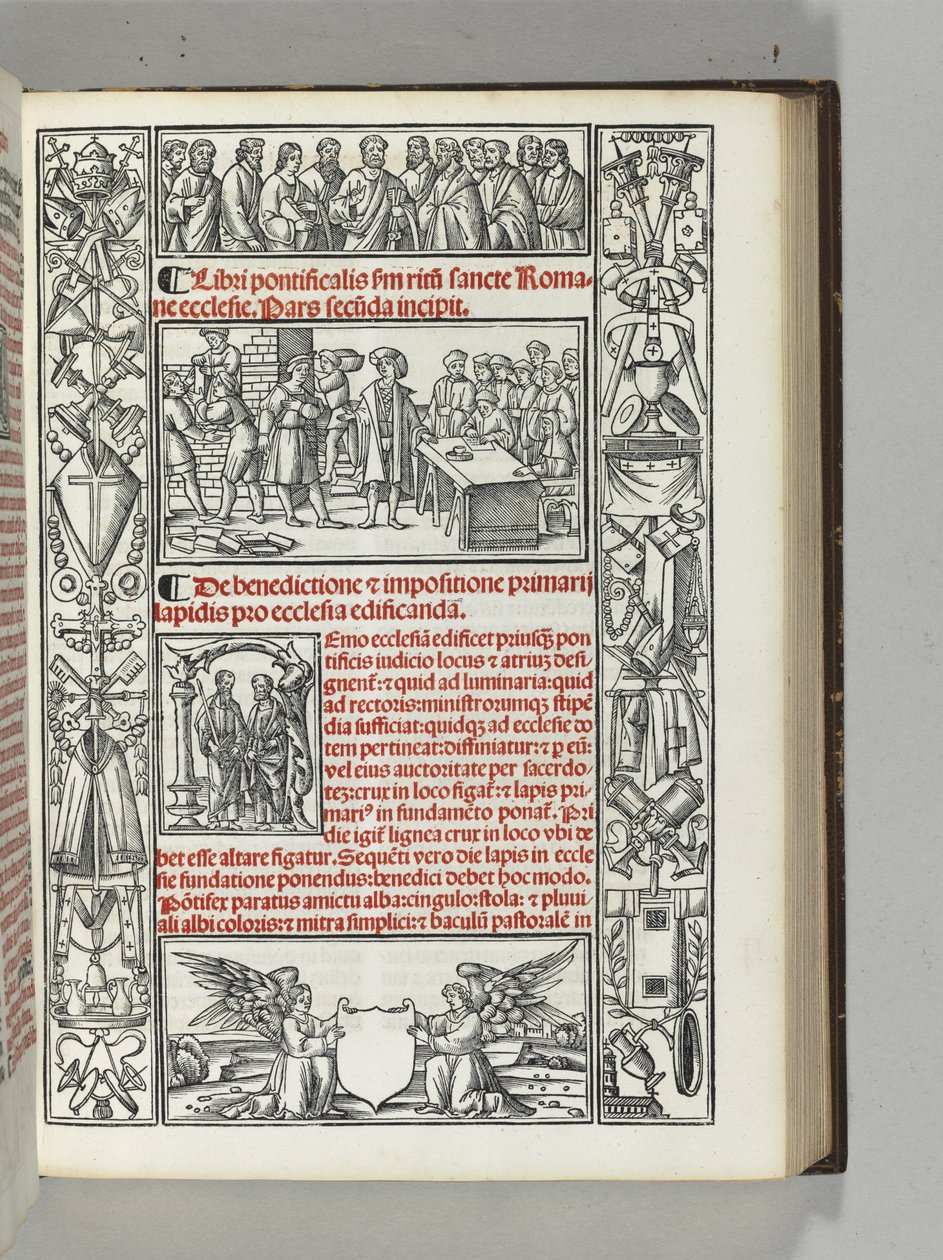 ¶ Libri pontificalis ẜm ritũ sancte Roma-
ne ecclesie. Pars secũda incipit.
¶ De benedictione ⁊ impositione primarij
lapidis pro ecclesia edificanda.
Emo ecclesiã edificet priusqȝ pon
tificis iudicio locus ⁊ atriuȝ desi-
gnent᷑:⁊ quid ad luminaria:quid
ad rectoris:ministrorumqȝ stipẽ
dia sufficiat:quidqȝ ad ecclesie do
tem pertineat:diffiniatur:⁊ ꝑ eũ:
vel eius auctoritate per sacerdo-
teȝ:crux in loco figat᷑:⁊ lapis pri-
mariꝰ in fundamẽto ponat᷑. Pri
die igit᷑ lignea crux in loco vbi de
bet esse altare figatur. Sequẽti vero die lapis in eccle
sie fundatione ponendus:benedici debet hoc modo.
Põtifex paratus amictu alba:cingulo:stola: ⁊ pluui-
ali albi coloris:⁊ mitra simplici:⁊ baculũ pastoralẽ in